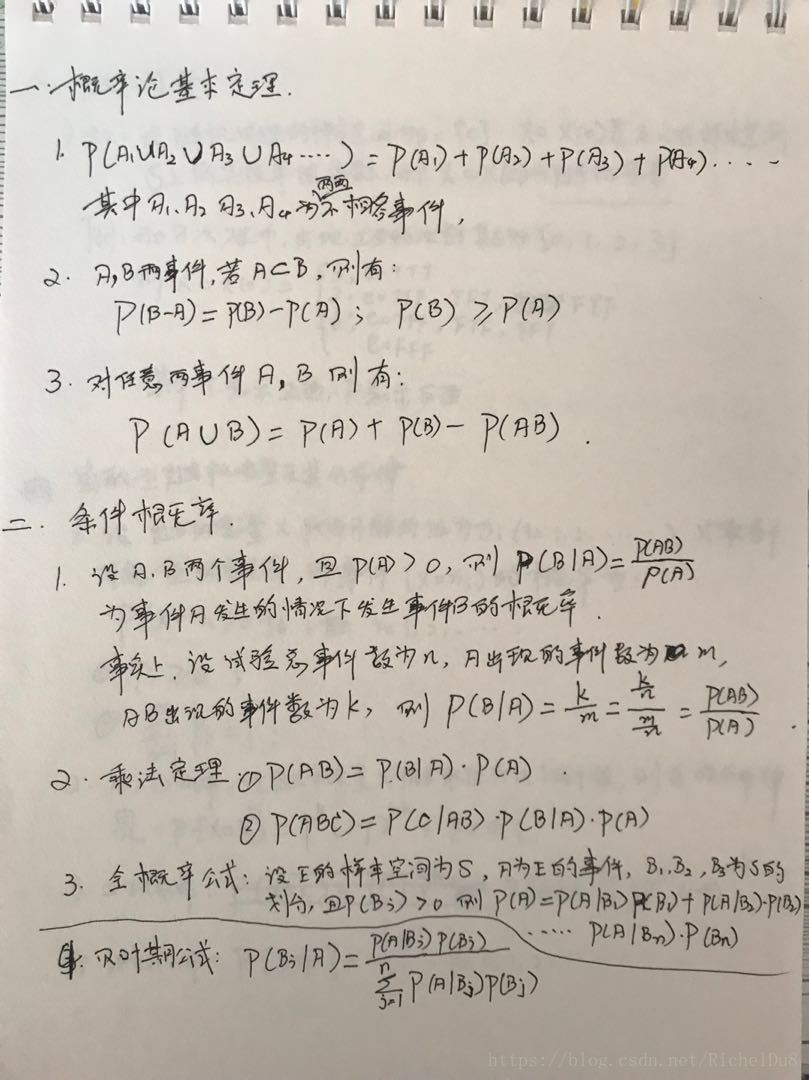 一. 概率论基本定理.
1. P(A₁∪A₂∪A₃∪A₄····) = P(A₁)+P(A₂)+P(A₃)+P(A₄)····
其中A₁、A₂ A₃、A₄为两两不相容事件,
2. A,B两事件,若A⊂B,则有:
P(B-A)=P(B)-P(A); P(B)≥P(A)
3. 对任意两事件A,B则有:
P(A∪B)=P(A)+P(B)-P(AB).
二. 条件概率.
1. 设A.B两个事件,且P(A)>0,则P(B|A)=P(AB)/P(A)
为事件A发生的情况下发生事件B的概率.
事实上,设试验总事件数为n,A出现的事件数为m,
AB出现的事件数为k,则P(B|A)=k/m=(k/n)/(m/n)=P(AB)/P(A).
2. 乘法定理.①P(AB)=P(B|A)·P(A).
②P(ABC)=P(C|AB)·P(B|A)·P(A)
3. 全概率公式:设E的样本空间为S,A为E的事件,B₁.B₂,B₃为S的
划分,且P(Bⱼ)>0则P(A)=P(A|B₁)P(B₁)+P(A|B₂)·P(B₂)
····· P(A|Bn)·P(Bn)
4. 贝叶斯公式: P(Bⱼ|A)=P(A|Bⱼ)P(Bⱼ)/∑ⁿⱼ₌₁P(A|Bⱼ)P(Bⱼ)
https://blog.csdn.net/RichelDu8